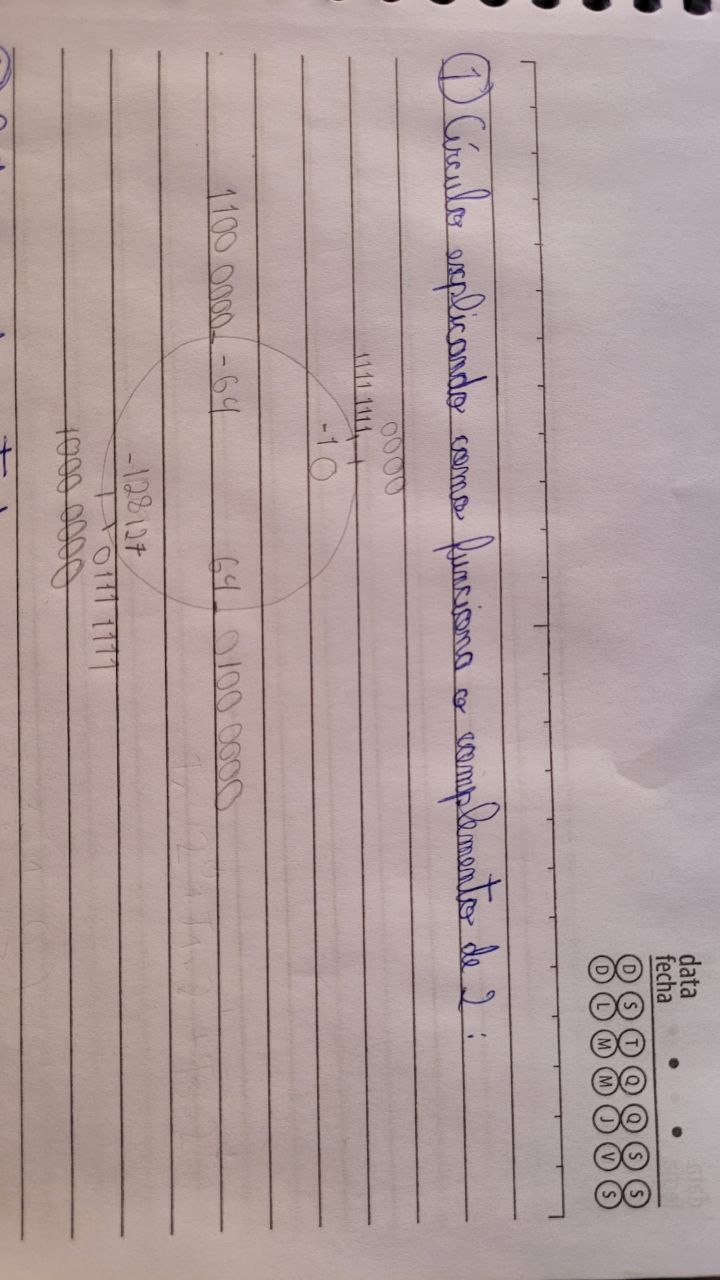 data
fecha
D S T Q Q S S
D L M M J V S
1 Círculo explicando como funciona o complemento de 2:
0000
1111 1111
-1 0
1100 0000 -64 64 0100 0000
-128 127
0111 1111
1000 0000